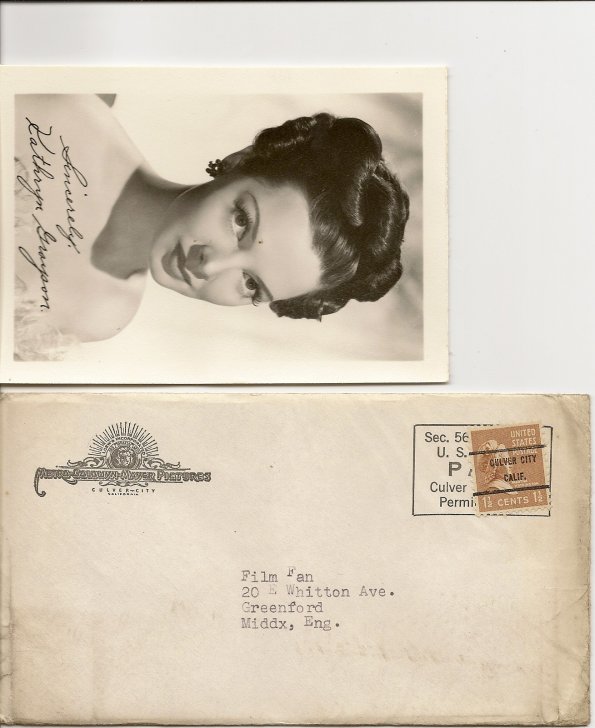 Sincerely,
Kathryn Grayson.
METRO-GOLDWYN-MAYER PICTURES
CULVER-CITY
CALIFORNIA
Sec. 56
U. S.
P
Culver
Permi
UNITED
STATES
CULVER CITY
CALIF.
1½ CENTS 1½
Film Fan
20 E Whitton Ave.
Greenford
Middx, Eng.